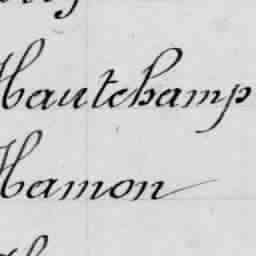 Hautchamp
Hamon